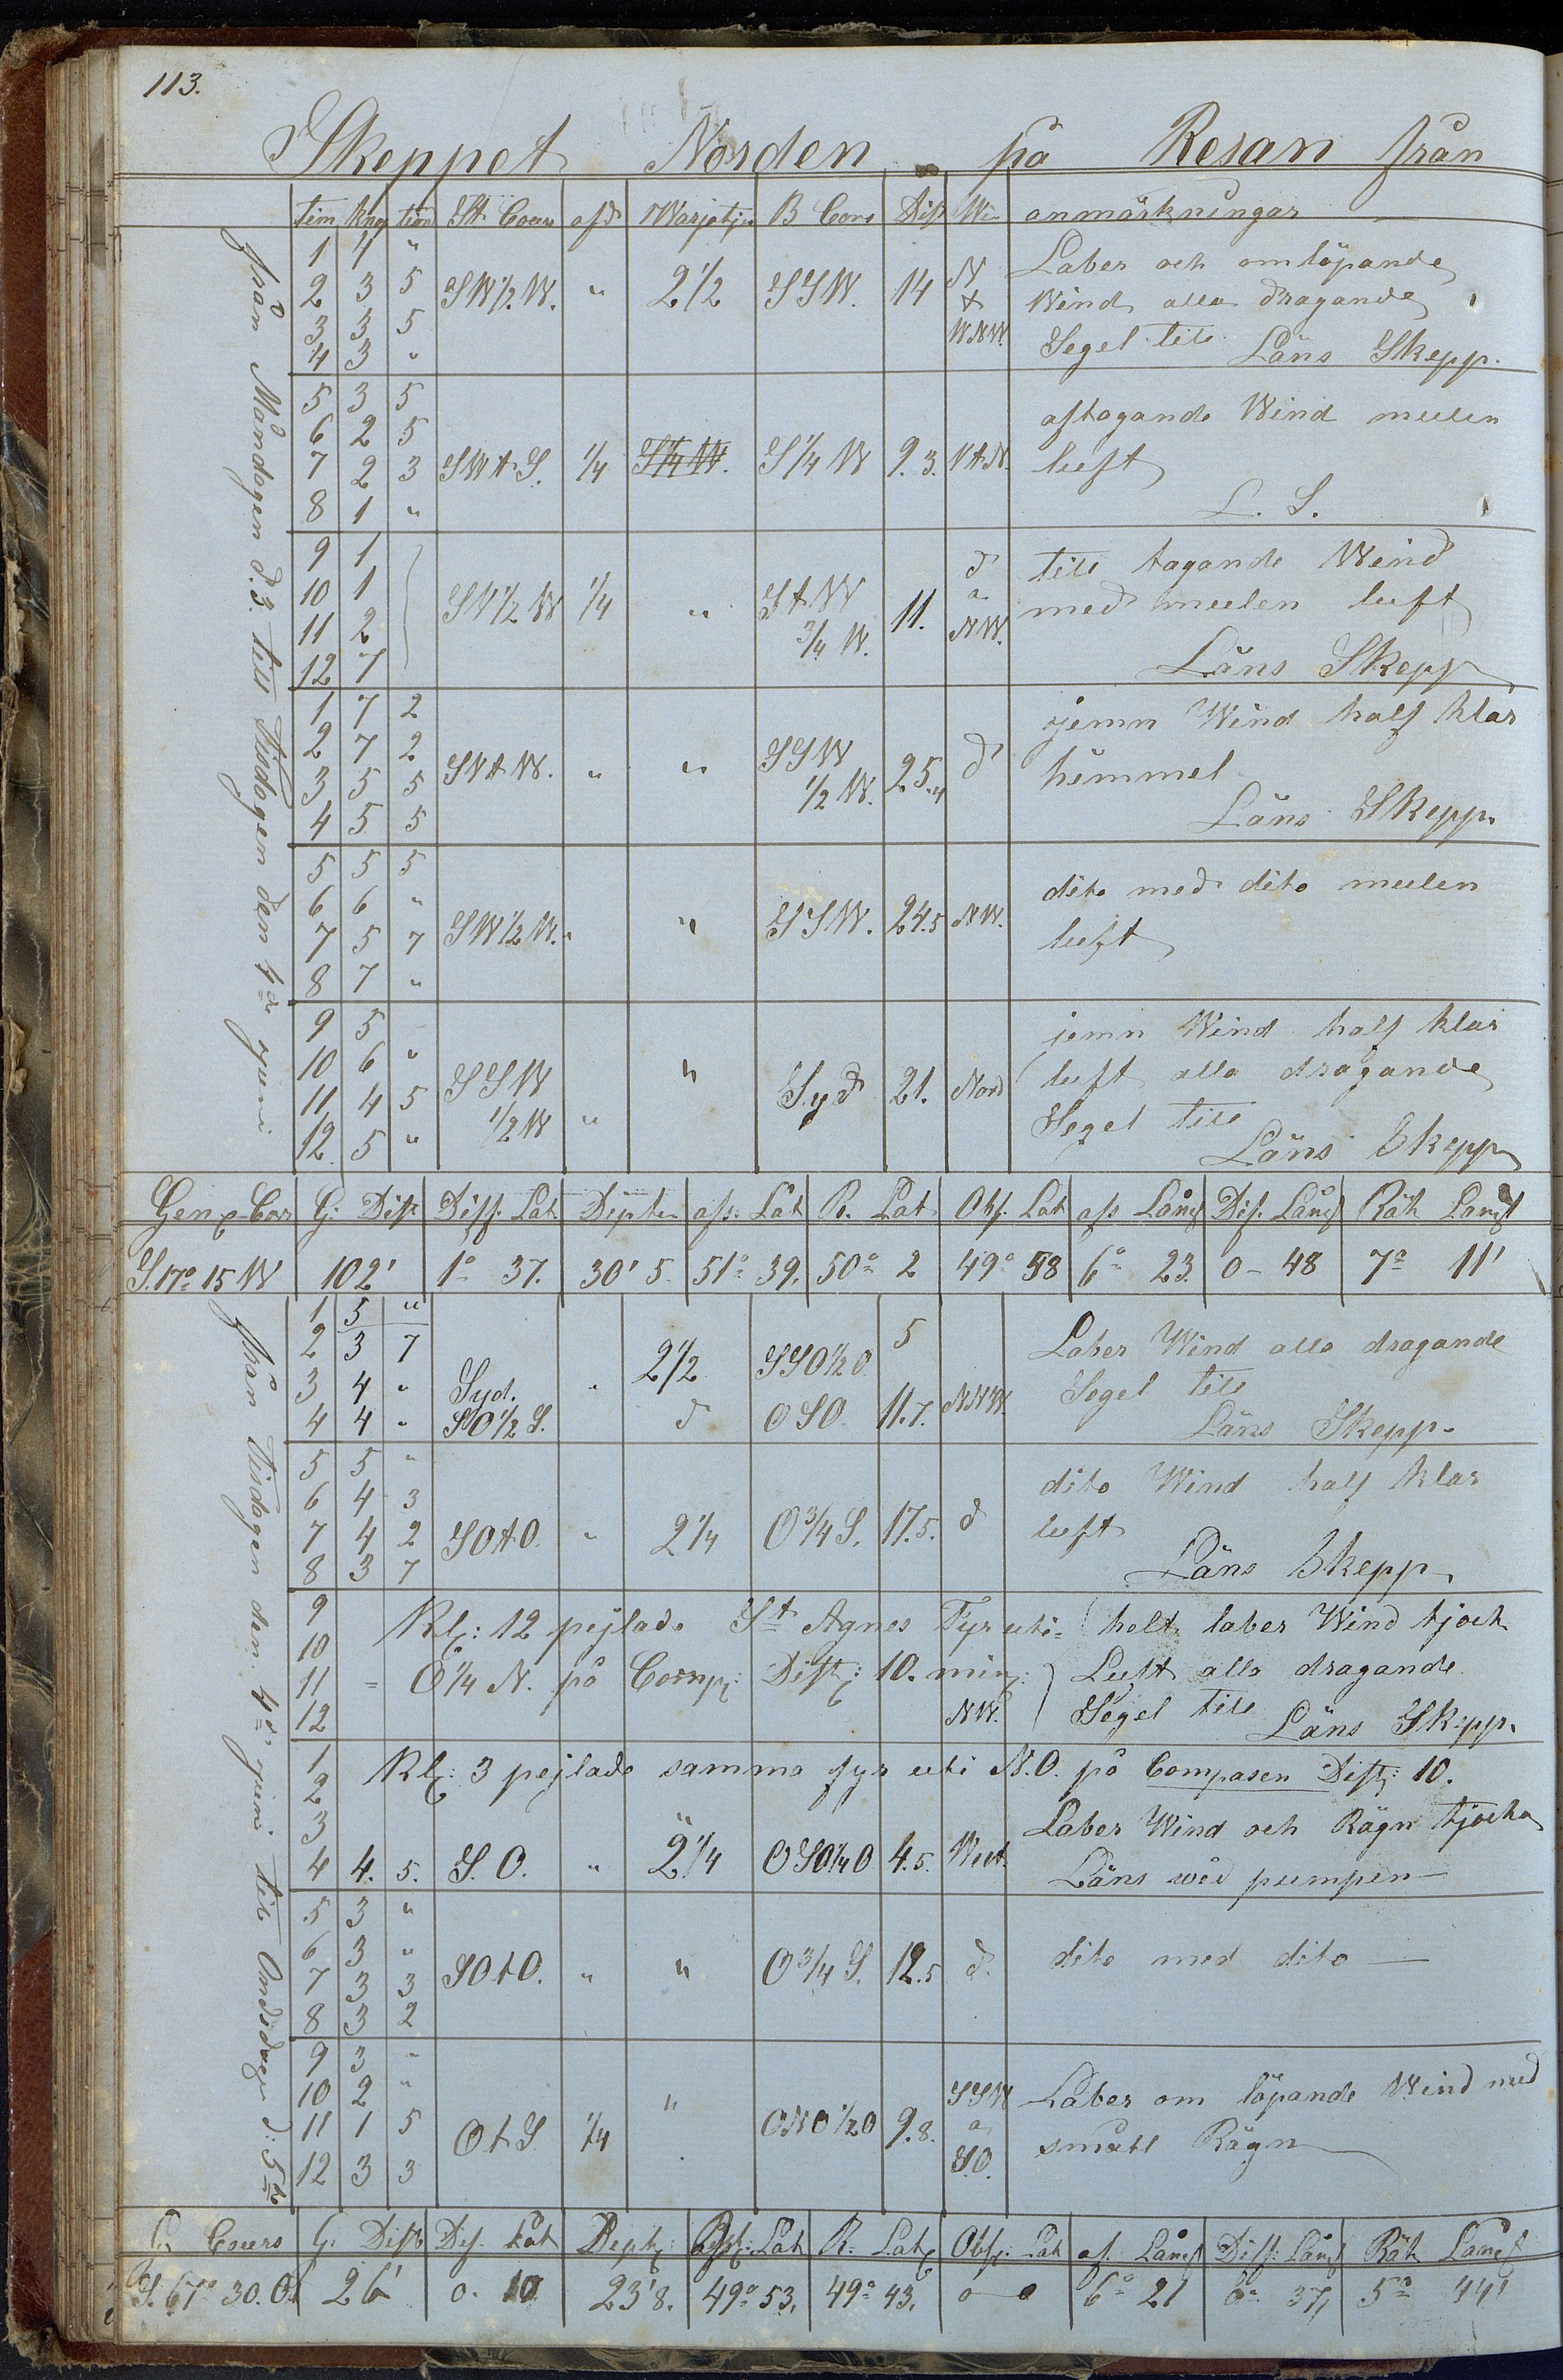 113.
Skeppet Norden på Resan från
tim kno tion St Cours afd Warjatjn B Cors Dist Wi anmärkningar
från Mandagen d. 3. till Tisdagen den 4de juni
1 4 "
2 3 5 SW1/2W. " 2 1/2 SSW. 14 N t WNW. Laber och omlöpande
3 3 5 Wind alla dragande
4 3 " Segel till Läns Skepp.
5 3 5 aftagande Wind mulen
6 2 5
7 2 3 SWtS. 1/4 S1/4W. S1/4W 9.3. VtN. luft
8 1 " L. S.
9 1 till tagande Wind
10 1 SV1/2W 1/4 " StW 3/4 W. 11. d a NW. med mulen luft
11 2
12 7 Läns Skepp
1 7 2 jemn Wind half klar
2 7 2 SVtW. " " SSW 1/2 W. 25.4 d himmel
3 5 5
4 5 5 Läns Skepp.
5 5 5 dito med dito mulen
6 6 "
7 5 7 SW1/2W. " " SSW. 24.5 NW. luft
8 7 "
9 5 " jemn Wind half klar
10 6 " luft alla dragande
11 4 5 SSW 1/2W " " Syd 21. Nord Segel till
12 5 " Läns Skepp
Gen Cor G: Dist Diff. Lat. Depter afs. Lat R. Lat Obs. Lat afs Långf Dif. Långf Räk Langf
S.17° 15 W 102' 1° 37. 30' 5. 51° 39. 50° 2 49° 58 6° 23. 0 - 48 7° 11'
från Tisdagen den 4de juni till Onsdagen d: 5te
1 5 " 5 Laber Wind alla dragande
2 3 7 2 1/2 SSO1/2O
3 4 " Syd. " Segel till
4 4 " SO1/2S. d OSO. 11.7. NNW. Läns Skepp.
5 5 " dito Wind half klar
6 4 3
7 4 2 SOtO. " 2 1/4 O3/4S. 17.5. d luft
8 3 7 Läns Skepp
9 Kl: 12 pejlade St Agnes Fyr uti= helt laber Wind tjock
10
11 = O1/4N. på Comp: Dist: 10. min: Luft alla dragande
12 NW. Segel till Läns Skepp.
1 Kl: 3 pejlade samma fyr uti N.O. på Compasen Dist: 10.
2
3 Laber Wind och Rägn tjocka
4 4. 5. S.O. " 2 1/4 OSO1/4O 4.5. West. Läns wid pumpen
5 3 "
6 3 "
7 3 3 SOtO. " " O3/4S. 12.5 d. dito med dito
8 3 2
9 3 "
10 2 " Laber om löpande Wind med
11 1 5 OtS. 1/4 " ONO1/2O 9.8. SSW a S.O. smått Rägn
12 3 3
G. Cours G: Dist Dif. Lat Dept: Lat R. Lat Obs: Lat af. Långf Diff: Långf Räk Langf
S. 67° 30. O. 26' 0. 10 23'8. 49° 53. 49° 43. 0 0 6° 21 0° 37, 5° 44'